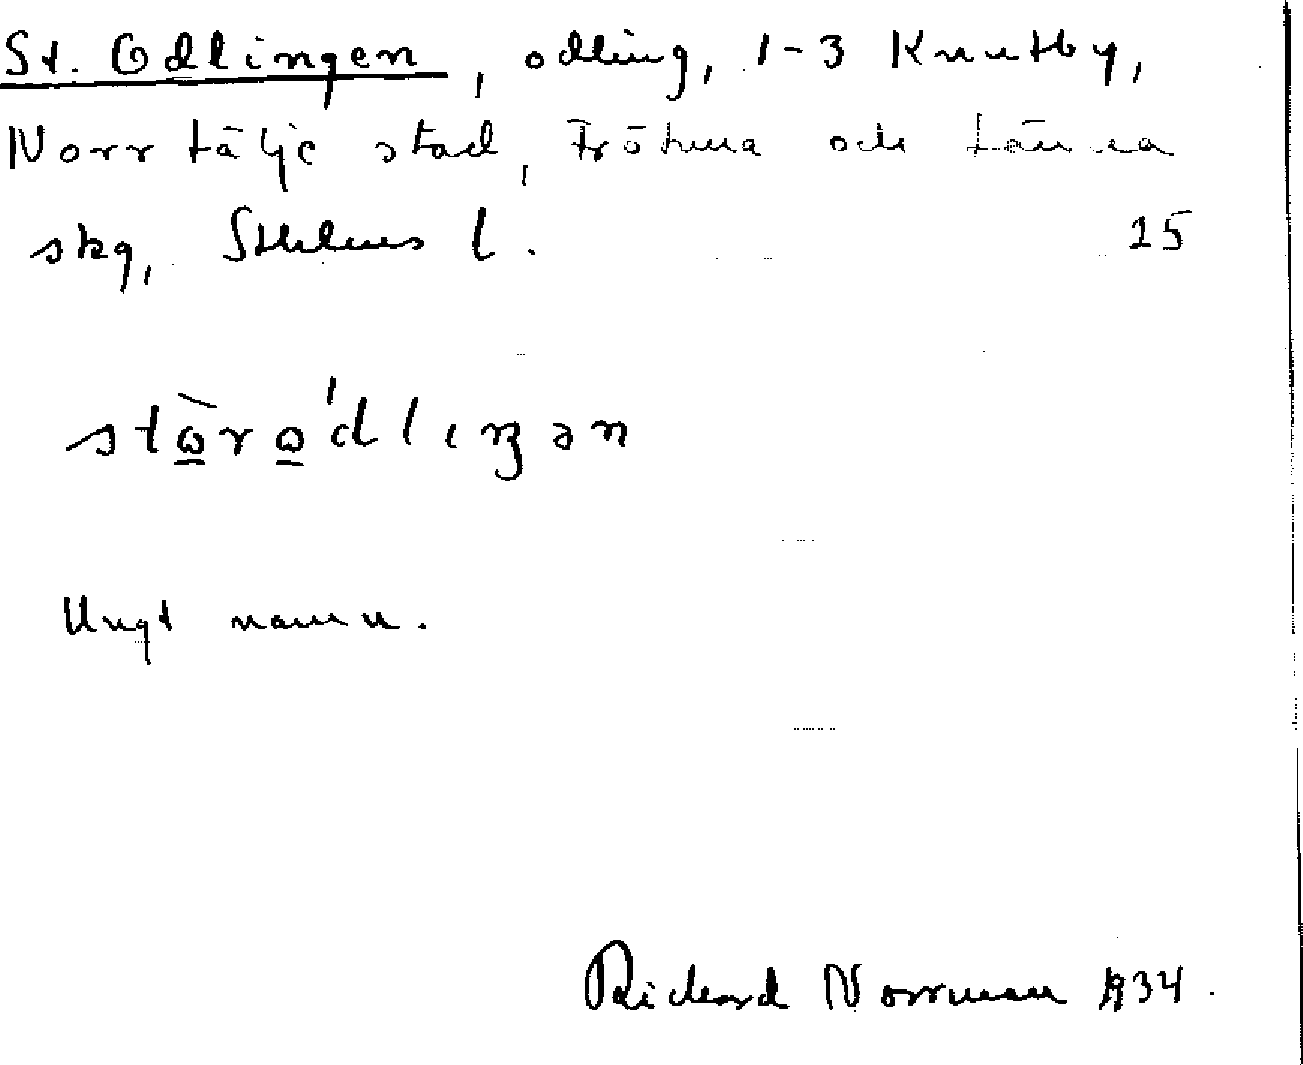 St. Odlingen, odling, 1-3 Knutby,
Norrtälje stad, Frötuna och Länna
skg, Sthlms l. 25
Ungt namn.
Richard Norrman 1934.